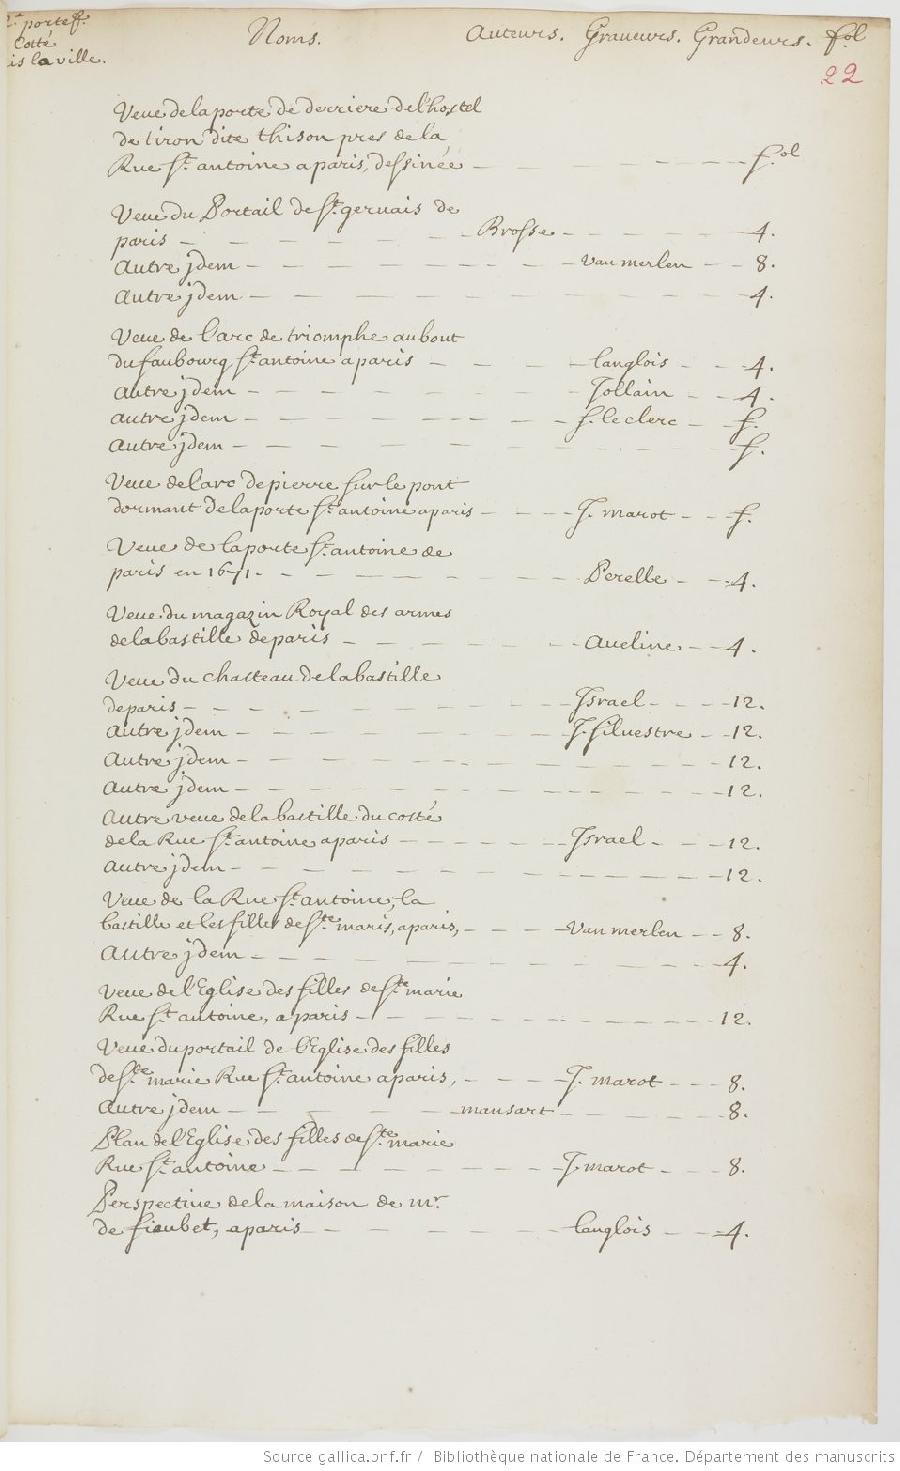 2.e portef. Noms. Auteurs. Graueurs. Grandeurs. fol
Cotté
is la ville.
22
Veue de la porte de derriere de l'hostel
de tiron dite thison pres de la
Rue St. antoine a paris, dessinée — — — — f.ol
Veue du Portail de St. geruais de
paris — — — — Brosse — — — — 4.
Autre jdem — — — — van merlen — — 8.
Autre jdem — — — — 4.
Veue de l'arc de triomphe au bout
du faubourg St. antoine a paris — — — Langlois — — 4.
Autre jdem — — — — Jollain — — 4.
Autre jdem — — — — f. le clerc — f.
Autre jdem — — — — f.
Veue de l'arc de pierre sur le pont
dormant de la porte St. antoine a paris — — — J. marot — — f.
Veue de la porte St. antoine de
paris en 1671. — — — — Perelle — — 4.
Veue du magazin Royal des armes
de la bastille de paris — — — — Aueline. — — 4.
Veue du chasteau de la bastille
de paris — — — — Israel — — — 12.
Autre jdem — — — — J. siluestre — — 12.
Autre jdem — — — — 12.
Autre jdem — — — — 12.
Autre veue de la bastille du costé
de la Rue St. antoine a paris — — — — Israel — — — 12.
Autre jdem — — — — 12.
Veue de la Rue St. antoine, la
bastille et les filles de Ste. marie, a paris, — — — — Van merlen — — 8.
Autre jdem — — — — 4.
Veue de l'Eglise des filles de Ste. marie
Rue St. antoine, a paris — — — — 12.
Veue du portail de l'Eglise des filles
de Ste. marie Rue St. antoine a paris, — — — — J. marot — — — 8.
Autre jdem — — — — mansart — — — — 8.
Plan de l'Eglise des filles de Ste. marie
Rue St. antoine — — — — J. marot — — — 8.
Perspectiue de la maison de mr.
de fieubet, a paris — — — — Langlois — — — 4.
Source gallica.bnf.fr / Bibliothèque nationale de France. Département des manuscrits